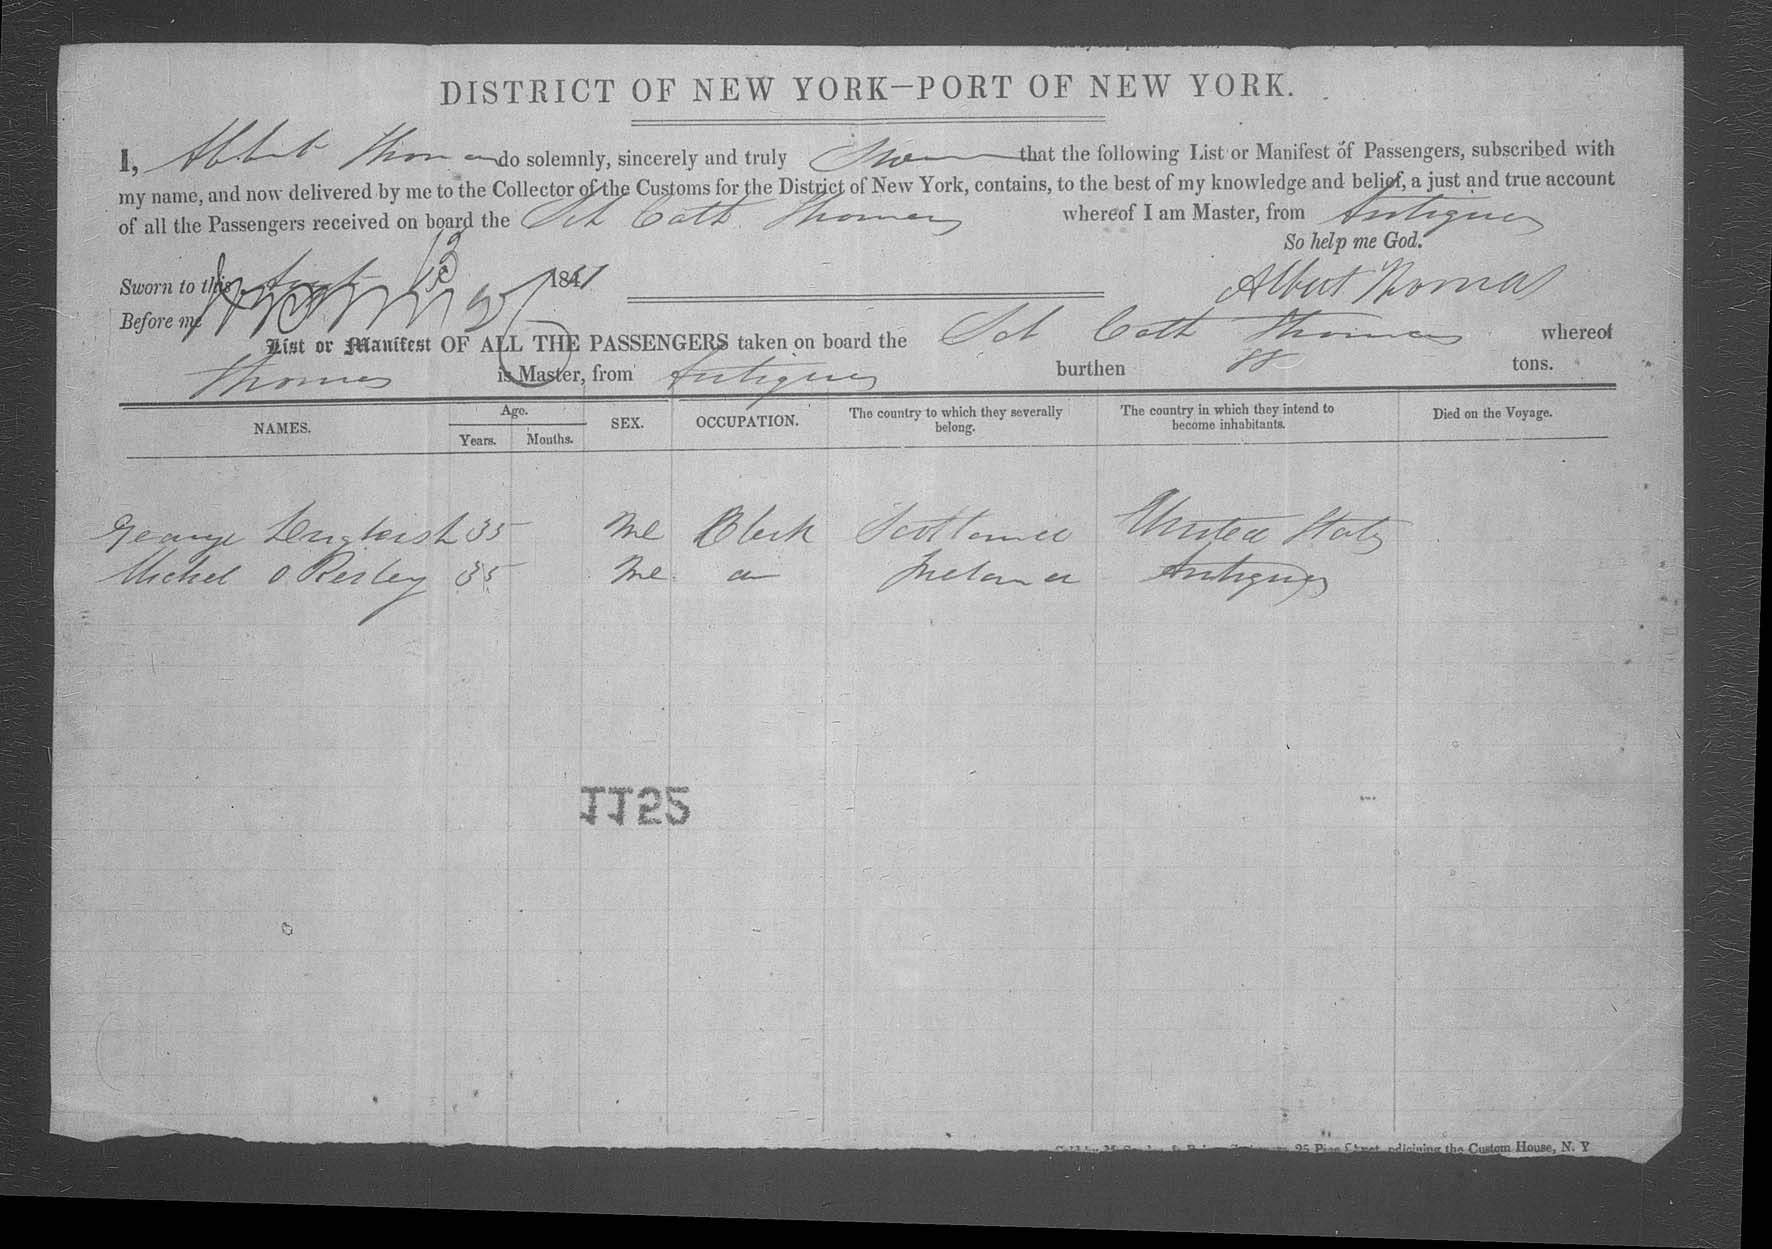 DISTRICT OF NEW YORK—PORT OF NEW YORK.
I, Albert Thomas do solemnly, sincerely and truly Swear that the following List or Manifest of Passengers, subscribed with
my name, and now delivered by me to the Collector of the Customs for the District of New York, contains, to the best of my knowledge and belief, a just and true account
of all the Passengers received on board the Sch Cath Thomas whereof I am Master, from Antigua
So help me God.
Sworn to this Sept 13 1841
Albert Thomas
Before me
List or Manifest OF ALL THE PASSENGERS taken on board the Sch Cath Thomas whereof
Thomas is Master, from Antigua burthen 88 tons.
NAMES. Age. Years. Months. SEX. OCCUPATION. The country to which they severally belong. The country in which they intend to become inhabitants. Died on the Voyage.
George 35 Me Clerk Scotland United States
Michel O 35 Me Ireland Antigua
1152
25 Pine Street, adjoining the Custom House, N. Y